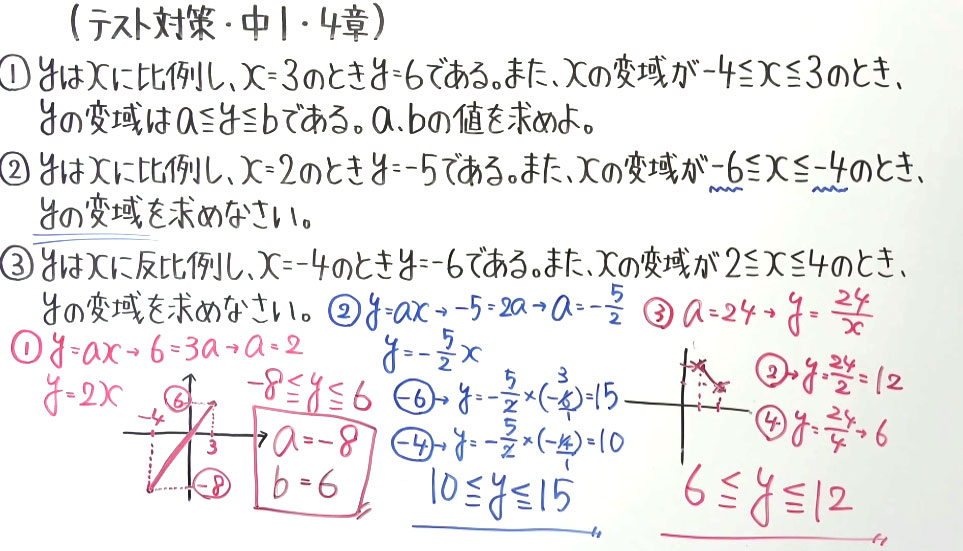 (テスト対策・中1・4章)
① yはxに比例し、x=3のときy=6である。また、xの変域が-4≦x≦3のとき、
yの変域はa≦y≦bである。a、bの値を求めよ。
② yはxに比例し、x=2のときy=-5である。また、xの変域が-6≦x≦-4のとき、
yの変域を求めなさい。
③ yはxに反比例し、x=-4のときy=-6である。また、xの変域が2≦x≦4のとき、
yの変域を求めなさい。
① y=ax→6=3a→a=2
y=2x
6
-4
3
-8
-8≦y≦6
a=-8
b=6
② y=ax→-5=2a→a=-5/2
y=-5/2x
-6→y=-5/2×(-6)=15
3
1
-4→y=-5/2×(-4)=10
1
10≦y≦15
③ a=24→y=24/x
2→y=24/2=12
4 y=24/4→6
6≦y≦12